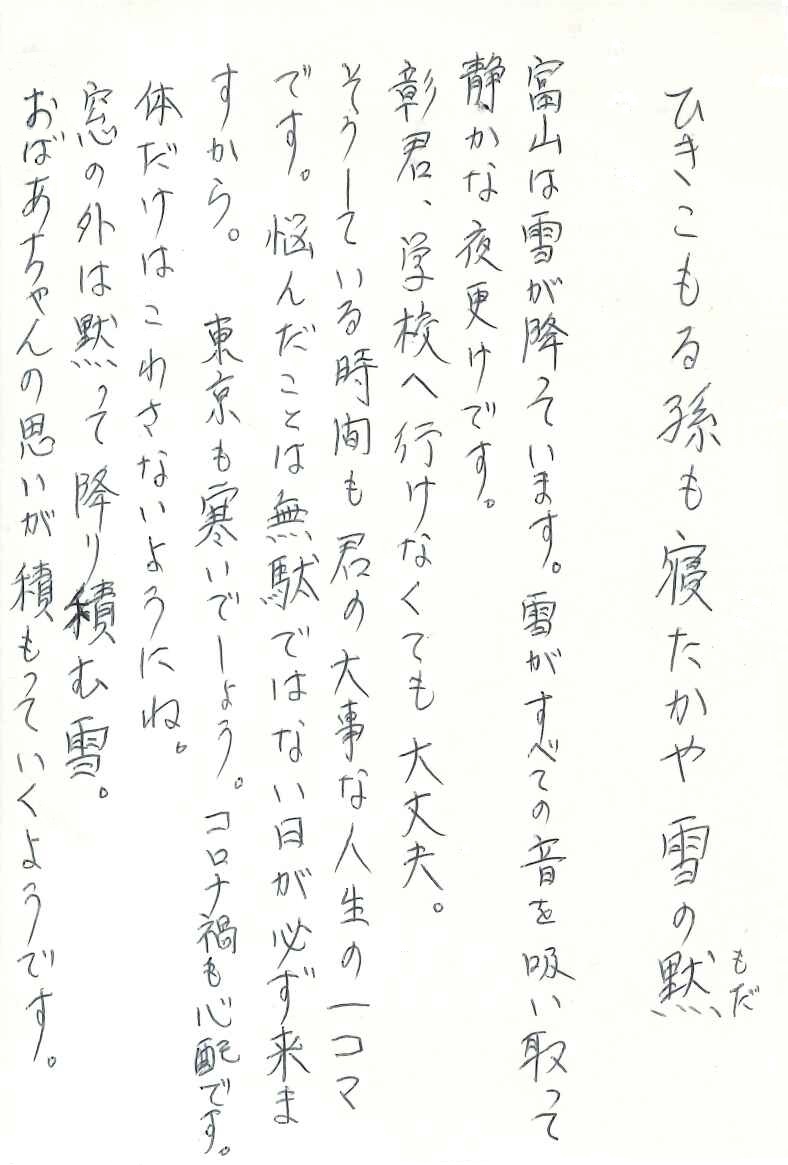 ひきこもる孫も寝たかや雪の黙
もだ
富山は雪が降っています。雪がすべての音を吸い取って
静かな夜更けです。
彰君、学校へ行けなくても大丈夫。
そうしている時間も君の大事な人生の一コマ
です。悩んだことは無駄ではない日が必ず来ま
すから。 東京も寒いでしょう。コロナ禍も心配です。
体だけはこわさないようにね。
窓の外は黙って降り積む雪。
おばあちゃんの思いが積もっていくようです。